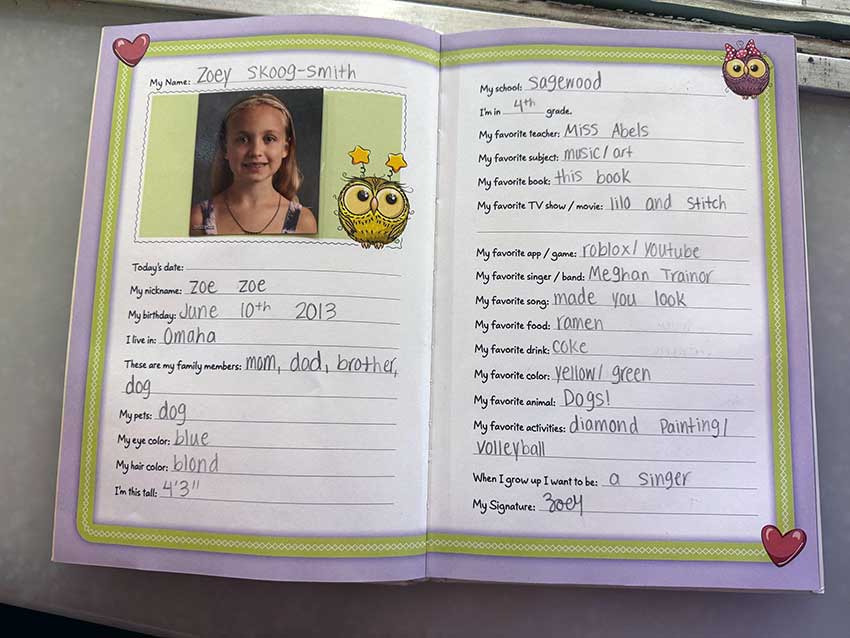 My Name: Zoey Skoog-Smith
Today's date:
My nickname: Zoe Zoe
My birthday: June 10th 2013
I live in: Omaha
These are my family members: mom, dad, brother,
dog
My pets: dog
My eye color: blue
My hair color: blond
I'm this tall: 4'3"
My school: Sagewood
I'm in 4th grade.
My favorite teacher: Miss Abels
My favorite subject: music/art
My favorite book: this book
My favorite TV show / movie: lilo and Stitch
My favorite app / game: roblox/Youtube
My favorite singer / band: Meghan Trainor
My favorite song: made you look
My favorite food: ramen
My favorite drink: coke
My favorite color: yellow/green
My favorite animal: Dogs!
My favorite activities: diamond Painting/
volleyball
When I grow up I want to be: a singer
My Signature: Zoey